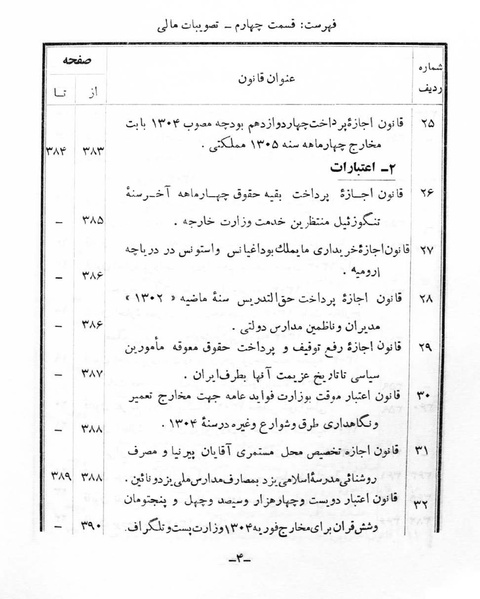 فهرست: قسمت چهارم – تصویبات مالی
شماره ردیف
عنوان قانون
صفحه
از
تا
۲۵ قانون اجازهٔ پرداخت چهار دوازدهم بودجه مصوب ۱۳۰۴ بابت
مخارج چهارماهه سنه ۱۳۰۵ مملکتی . ۳۸۳ ۳۸۴
۲- اعتبارات
۲۶ قانون اجازهٔ پرداخت بقیه حقوق چهارماهه آخر سنهٔ
تنگوزئیل منتظرین خدمت وزارت خارجه . ۳۸۵ –
۲۷ قانون اجازهٔ خریداری مایملک بوداغیانس واستونس در دریاچه
ارومیه . ۳۸۶ –
۲۸ قانون اجازهٔ پرداخت حق‌التدریس سنهٔ ماضیه « ۱۳۰۲ »
مدیران و ناظمین مدارس دولتی . ۳۸۶ –
۲۹ قانون اجازهٔ رفع توقیف و پرداخت حقوق معوقه مأمورین
سیاسی تا تاریخ عزیمت آنها بطرف ایران . ۳۸۷ –
۳۰ قانون اعتبار موقت بوزارت فواید عامه جهت مخارج تعمیر
و نگاهداری طرق و شوارع و غیره در سنهٔ ۱۳۰۴ . ۳۸۸ –
۳۱ قانون اجازه تخصیص محل مستمری آقایان پیرنیا و مصرف
روشنائی مدرسهٔ اسلامی یزد بمصارف مدارس ملی یزد و نائین . ۳۸۸ ۳۸۹
۳۲ قانون اعتبار دویست و چهار هزار و سیصد و چهل و پنجتومان
و شش قران برای مخارج فوریه ۱۳۰۴ وزارت پست و تلگراف. ۳۹۰ –
–۴–